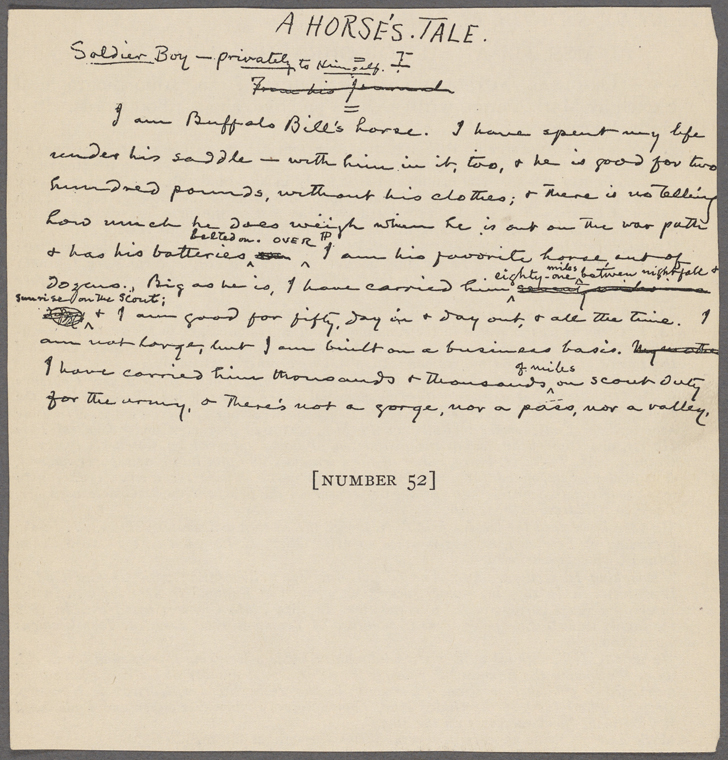 A HORSE'S TALE.
I
Soldier Boy — privately to Himself.
From his journal
I am Buffalo Bill's horse. I have spent my life
under his saddle — with him in it, too, & he is good for two
hundred pounds, without his clothes; & there is no telling
how much he does weigh when he is out on the war path
belted on. OVER ¶
& has his batteries I am his favorite horse, out of
eighty-one miles between nightfall &
dozens. Big as he is, I have carried him
sunrise on the scout;
& I am good for fifty, day in & day out, & all the time. I
am not large, but I am built on a business basis. My mother
of miles
I have carried him thousands & thousands on scout duty
for the army, & there's not a gorge, nor a pass, nor a valley,
[NUMBER 52]